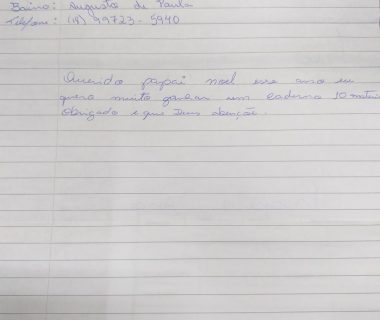 Bairro: Augusto de Paula
Telefone: (18) 99723-5940
Querido papai noel esse ano eu
quero muito ganhar um caderno 10 matéria
Obrigado e que Deus abençõe.